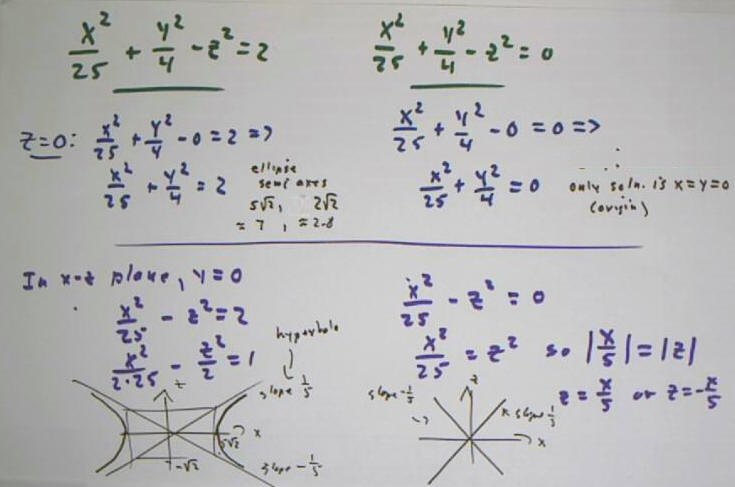 x²/25 + y²/4 - z² = 2
x²/25 + y²/4 - z² = 0
z=0: x²/25 + y²/4 - 0 = 2 =>
x²/25 + y²/4 = 2
ellipse
semi axes
5√2, 2√2
≈ 7, ≈ 2.8
x²/25 + y²/4 - 0 = 0 =>
x²/25 + y²/4 = 0
only soln. is x=y=0
(origin)
In x-z plane, y=0
x²/25 - z² = 2
x²/2·25 - z²/2 = 1
hyperbola
z
slope 1/5
x
5√2
-√2
slope -1/5
x²/25 - z² = 0
x²/25 = z² so |x/5| = |z|
z = x/5 or z = -x/5
slope -1/5
z
slope 1/5
x